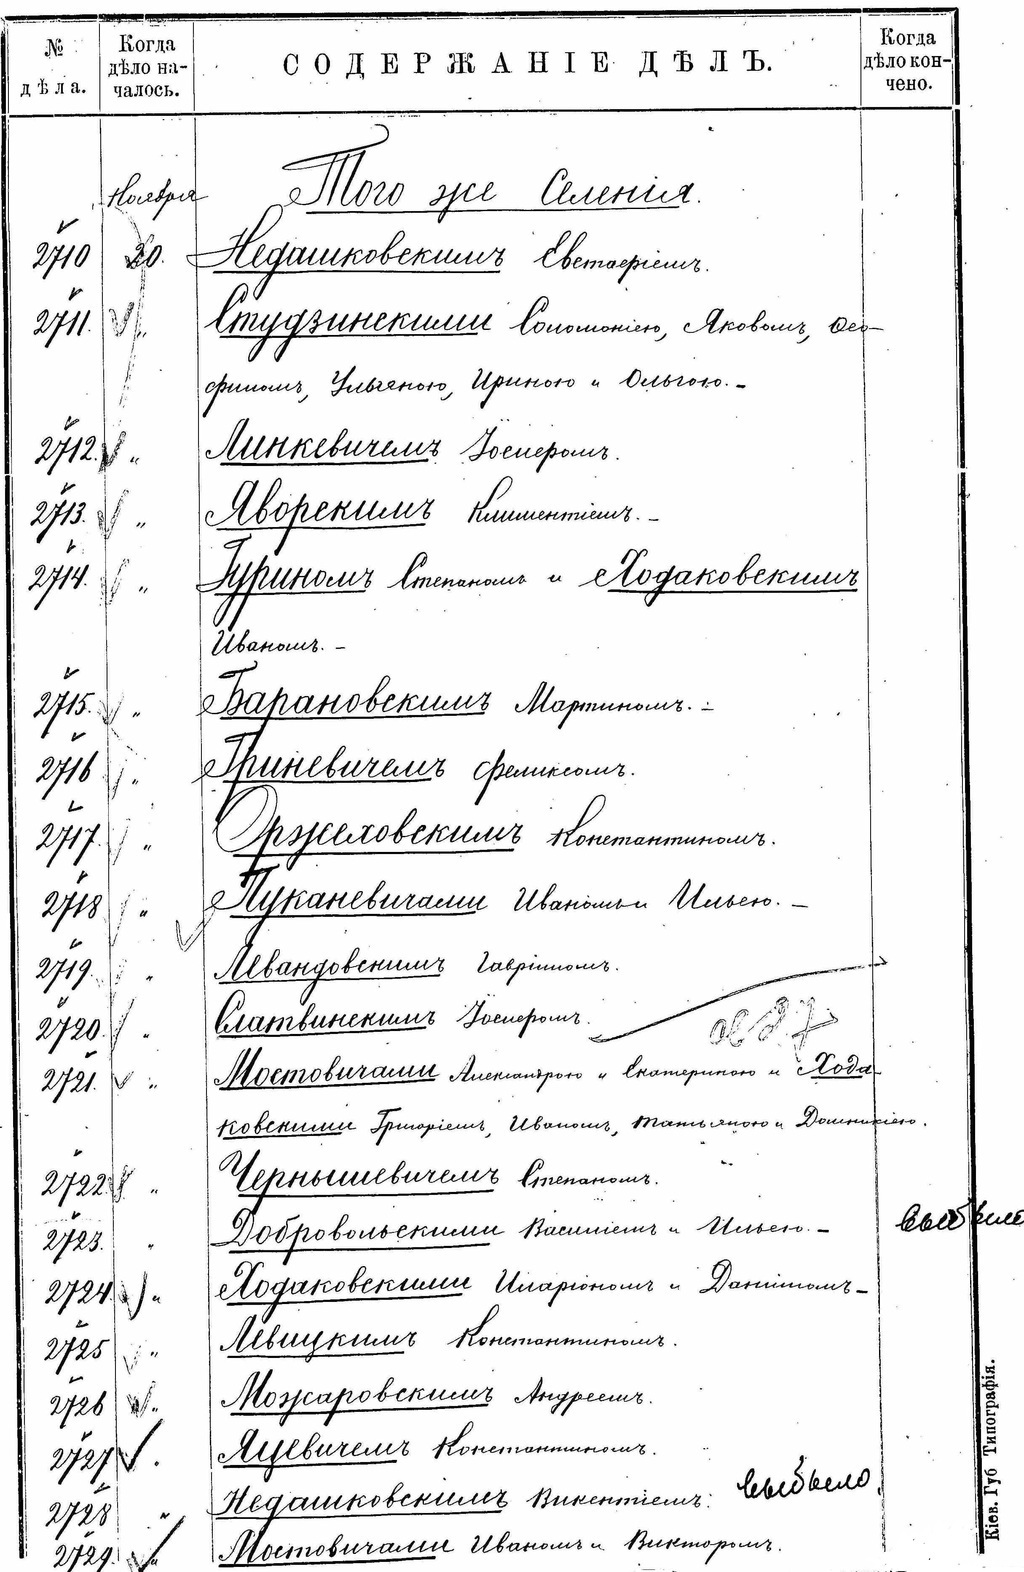 № дѣла.
Когда дѣло началось.
СОДЕРЖАНІЕ ДѢЛЪ.
Когда дѣло кончено.
Ноября
Того же Селенія.
2710 20. Недашковскимъ Евстафіемъ.
2711. Студзинскими Соломоніею, Яковомъ, Ѳео-
филомъ, Ульяною, Ириною и Ольгою.-
2712. „ Линкевичемъ Іосифомъ.
2713. „ Яворскимъ Климентіемъ.-
2714. „ Гуриномъ Степаномъ и Ходаковскимъ
Иваномъ.-
2715. „ Барановскимъ Мартиномъ.-
2716 „ Гриневичемъ Феликсомъ.
2717. „ Оржеховскимъ Константиномъ.
2718 „ Лукашевичами Иваномъ и Ильею.-
2719. „ Левандовскимъ Гавріиломъ.
2720. „ Слатвинскимъ Іосифомъ.
2721. „ Мостовичами Александрою и Екатериною и Хода-
ковскими Григоріемъ, Иваномъ, Татьяною и Домникіею.
2722 „ Чернышевичемъ Степаномъ.
2723. „ Добровольскими Василіемъ и Ильею.- выбыле
2724 „ Ходаковскими Иларіономъ и Даніиломъ-
2725 „ Левицкимъ Константиномъ.
2726 „ Можаровскимъ Андреемъ.
2727 . Яцевичемъ Константиномъ.
2728 „ Недашковскимъ Викентіемъ. выбыло.
2729. „ Мостовичами Иваномъ и Викторомъ.
Кіев. Губ Типографія.